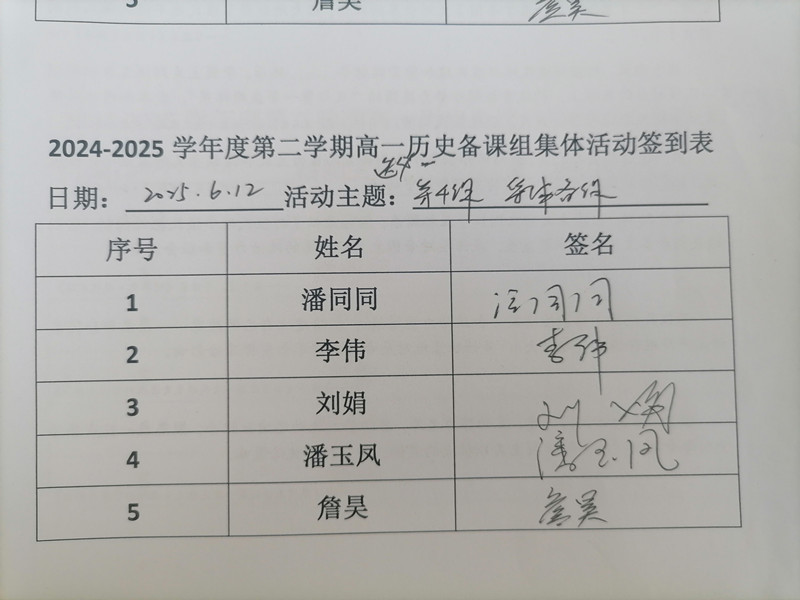 5 詹昊 詹昊
2024-2025 学年度第二学期高一历史备课组集体活动签到表
日期： 2025.6.12 活动主题： 第4组 集体备课
序号 姓名 签名
1 潘同同 潘同同
2 李伟 李伟
3 刘娟 刘娟
4 潘玉凤 潘玉凤
5 詹昊 詹昊